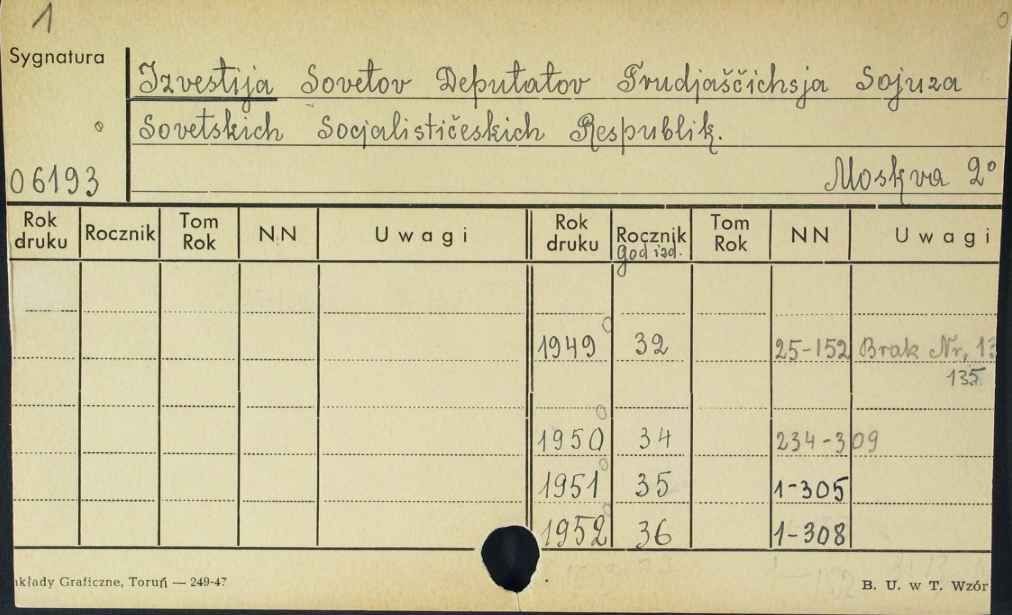 1
Sygnatura
Izvestija Sovetov Deputatov Trudjaščichsja Sojuza
Sovetskich Socjalističeskich Respublik.
06193
Moskva 2°
Rok druku Rocznik Tom Rok NN Uwagi Rok druku Rocznik god izd. Tom Rok NN Uwagi
1949 32 25-152 Brak Nr, 13
135
1950 34 234-309
1951 35 1-305
1952 36 1-308
akłady Graficzne, Toruń — 249-47
B. U. w T. Wzór